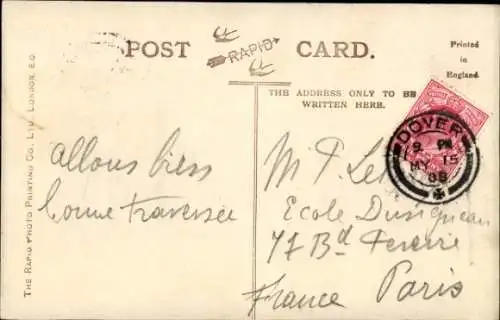 POST CARD.
RAPID
Printed
in
England.
THE ADDRESS ONLY TO BE
WRITTEN HERE.
THE RAPID PHOTO PRINTING CO., LTD., LONDON, E.C.
DOVER
9 PM
MY 15
08
allons bien
bonne traversée
M
Ecole
77 Bd Pereire
Paris
France